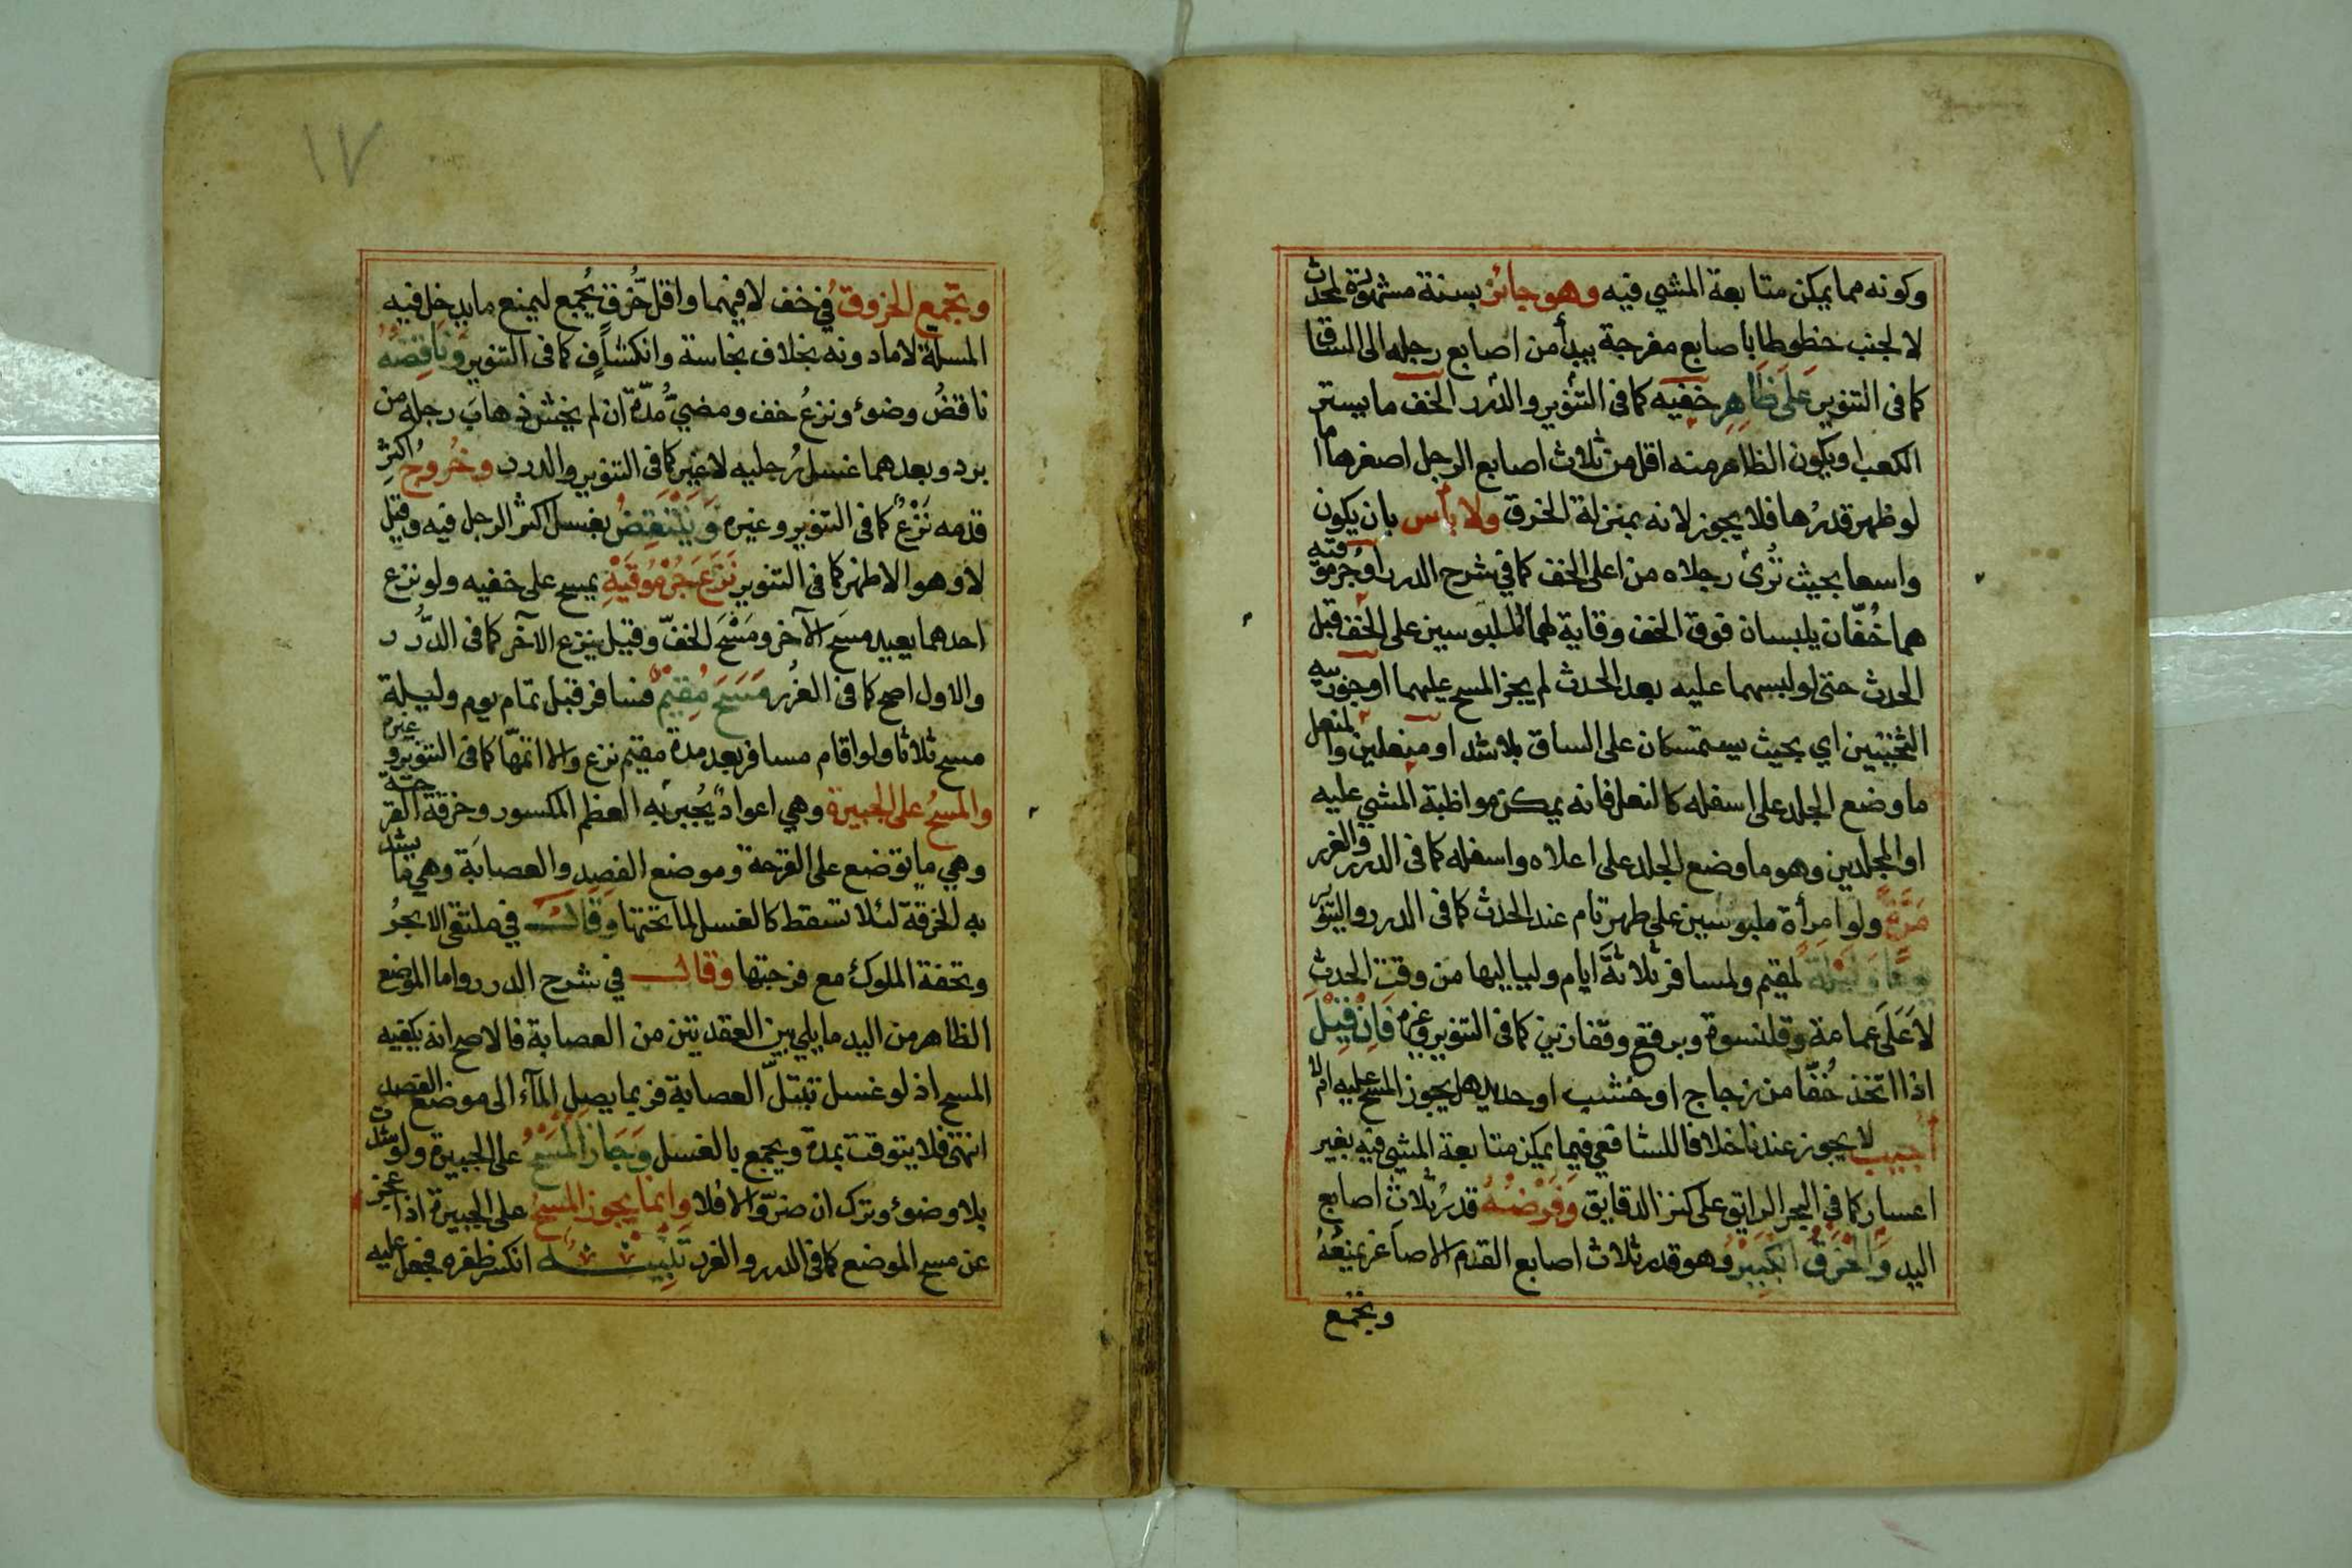 وكونه مما يمكن متابعة المشي فيه وهو جائز بسنة مشهورة لمحدث
لا لجنب خطوطا باصابع مفرجة يبدأ من اصابع رجله الى الساق
كما فى التنوير على ظاهر خفيه كما فى التنوير والدرر الخف ما يستر
الكعب او يكون الظاهر منه اقل من ثلاث اصابع الرجل اصغرها اما
لو ظهر قدرها فلا يجوز لانه بمنزلة الخرق ولا بأس بان يكون
واسعا بحيث تُرى رجلاه من اعلى الخف كما في شرح الدرر او جُرموقيه
هما خُفّان يلبسان فوق الخف وقاية لهما الملبوسين على الخف قبل
الحدث حتى لو لبسهما عليه بعد الحدث لم يجز المسح عليهما او جوربيه
الثخينين اي بحيث يستمسكان على الساق بلا شد او منعلين والمنعل
ما وضع الجلد على اسفله كالنعل فانه يمكن مواظبة المشي عليه
او المجلدين وهو ما وضع الجلد على اعلاه واسفله كما فى الدرر والغرر
مرّةً ولو امرأة ملبوسين على طهر تام عند الحدث كما فى الدرر والتنوير
يوما وليلة لمقيم ولمسافر ثلاثةَ ايام ولياليها من وقت الحدث
لا عَلَى عمامة وقلنسوة وبرقع وقفازين كما فى التنوير وغيره فَاِنْ قِيْلَ
اذا اتخذ خُفّا من زجاج او خشب او حديد هل يجوز المسح عليه ام لا
أجيب لا يجوز عندنا خلافا للشافعي فيما يمكن متابعة المشي فيه بغير
اعسار كما في البحر الرايق على كنز الدقايق وَفَرْضُهُ قدرُ ثلاث اصابع
اليد وَالْخَرقُ الكَبِيْرُ وهو قدر ثلاث اصابع القدم الاصاغر يمنعُهُ
وتجمع
١٧
وتجمع الخروق في خف لا فيهما واقل خُرق يُجمع ليمنع ما يدخل فيه
المسلّة لا ما دونه بخلاف نجاسة وانكشاف كما فى التنوير وَنَاقِضُهُ
ناقضُ وضوء ونزعُ خف ومضيُّ مُدّة ان لم يخش ذهابَ رجله من
برد وبعدهما غسل رُجليه لا غير كما فى التنوير والدرر وخُروُج اكثرِ
قدمه نَزْعٌ كما فى التنوير وغيره وَيَنْتَقِضُ بغسل اكثر الرجل فيه وقيل
لا وهو الاظهر كما فى التنوير نَزَعَ جُرْمُوقَيْهِ يمسح على خفيه ولو نزع
احدهما يعيد مسَح الآخر ومَسْحَ الخفّ وقيل ينزع الآخر كما فى الدُّرر
والاول اصح كما فى الغُرر مَسَحَ مُقِيْمٌ فسافر قبل تمام يوم وليلة
مسح ثلاثا ولو اقام مسافر بعد مدة مقيم نزع والا اتمّها كما فى التنوير وغيره
والمسحُ على الجبيرة وهي اعوادٌ يُجبر به العظم المكسور وخرقة القرحة
وهي ما توضع على القرحة وموضع الفصد والعصابَة وهي ما يشد
به الخرقة لئلا تسقط كالغسل لما تحتها وَقَالَ في ملتقى الابحُر
وتحفة الملوك مع فرجتها وقال في شرح الدرر واما الموضع
الظاهر من اليد ما يلي بين العقدتين من العصابة فالاصح انه يكفيه
المسح اذ لو غسل تبتلّ العصابة فربما يصل المآء الى موضع الفصد
انتهى فلا يتوقت بمدة ويجمع بالغسل وَجَازَ الْمَسْحُ على الجبيرة ولو شدت
بلا وضوء وترك ان ضرّ والا فلا وانما يجوز المسح على الجبيرة اذا عجز
عن مسح الموضع كما فى الدرر والغرر تَنْبِيْه انكسر ظفره فجعل عليه